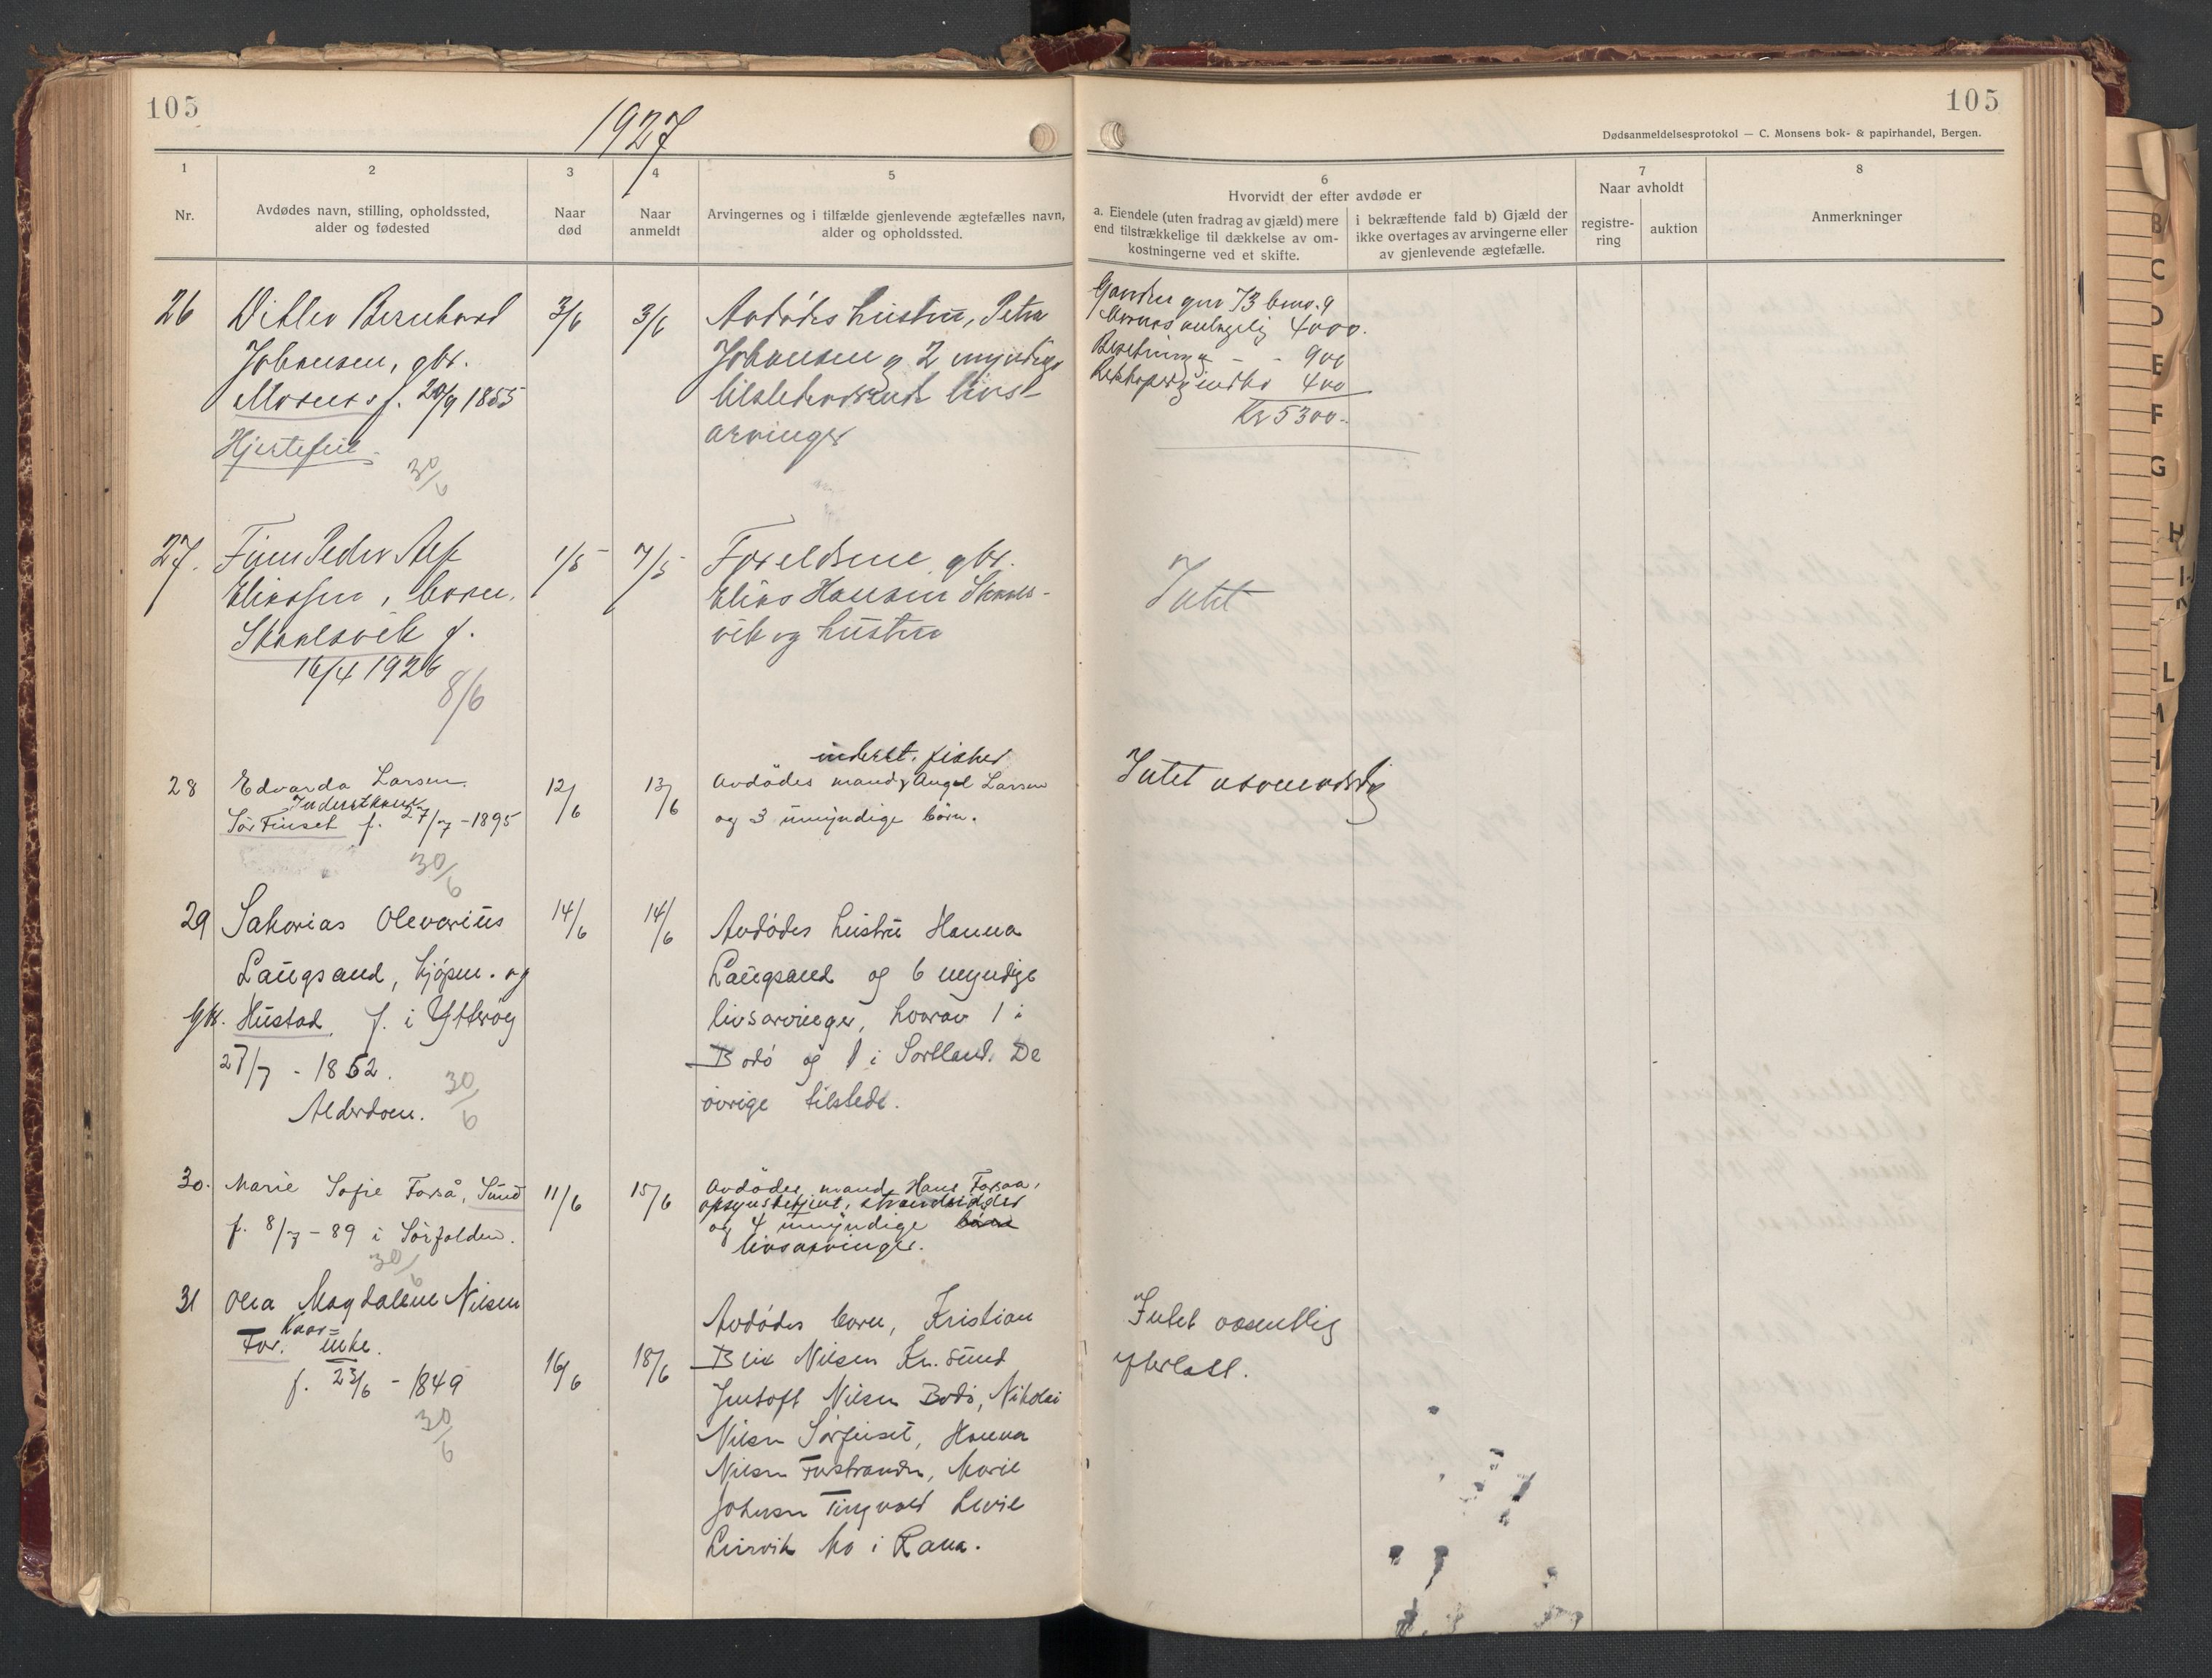 105
1927
105
Dødsanmeldelsesprotokol — C. Monsens bok- & papirhandel, Bergen.
1
2
3
4
5
6
7
8
Nr.
Avdødes navn, stilling, opholdssted,
alder og fødested
Naar
død
Naar
anmeldt
Arvingernes og i tilfælde gjenlevende ægtefælles navn,
alder og opholdssted.
Hvorvidt der efter avdøde er
a. Eiendele (uten fradrag av gjæld) mere
end tilstrækkelige til dækkelse av om-
kostningerne ved et skifte.
i bekræftende fald b) Gjæld der
ikke overtages av arvingerne eller
av gjenlevende ægtefælle.
Naar avholdt
registre-
ring
auktion
Anmerkninger
26
Ditlev Bernhard
Johansen, gbr.
Mornes f. 20/9 1855
Hjertefeil
30/6
3/6
3/6
Avdødes hustru, Petra
Johansen og 2 myndige
tilstedeværende livs-
arvinger
Gaarden gnr 73 bnr. 9
Mornes 4000.
Besetning - - 900
Redskaper og indbo 400
Kr 5300.-
27.
Finn Peder Alf
Eliassen, barn,
Skaalsvik f.
16/4 1926
8/6
1/5
7/5
Foreldrene gbr.
Elias Hansen Skaals-
vik og hustru
Intet
28
Edvarda Larsen
Inderstkone
Sør Finset f. 27/7 - 1895
30/6
12/6
13/6
inderst. fisker
Avdødes mand Angel Larsen
og 3 umyndige børn.
Intet
29
Sakarias Olevarius
Langsand, kjøpm. og
gbr. Hustad, f. i Ytterøy
27/7 - 1852.
Alderdom.
30/6
14/6
14/6
Avdødes hustru Hanna
Langsand og 6 myndige
livsarvinger, hvorav 1 i
Bodø og 1 i Sortland. De
øvrige tilstede.
30.
Marie Sofie Forså, Sund
f. 8/7 - 89 i Sørfolden.
30/6
11/6
15/6
Avdødes mand Hans Forsaa,
opsynsbetjent, strandsidder
og 4 umyndige børn
livsarvinger.
31
Olea Magdalene Nilsen
Kaar-
For. enke.
f. 23/6 - 1849
30/6
16/6
18/6
Avdødes barn, Kristian
Blix Nilsen Kr. sund
Jentoft Nilsen Bodø, Nikolai
Nilsen Sørfinset, Hanna
Nilsen Forstranden, Marie
Johnsen Tingvold
Leirvik Mo i Rana.
Intet væsentlig
efterlatt.
B
C
D
E
F
G
H
L